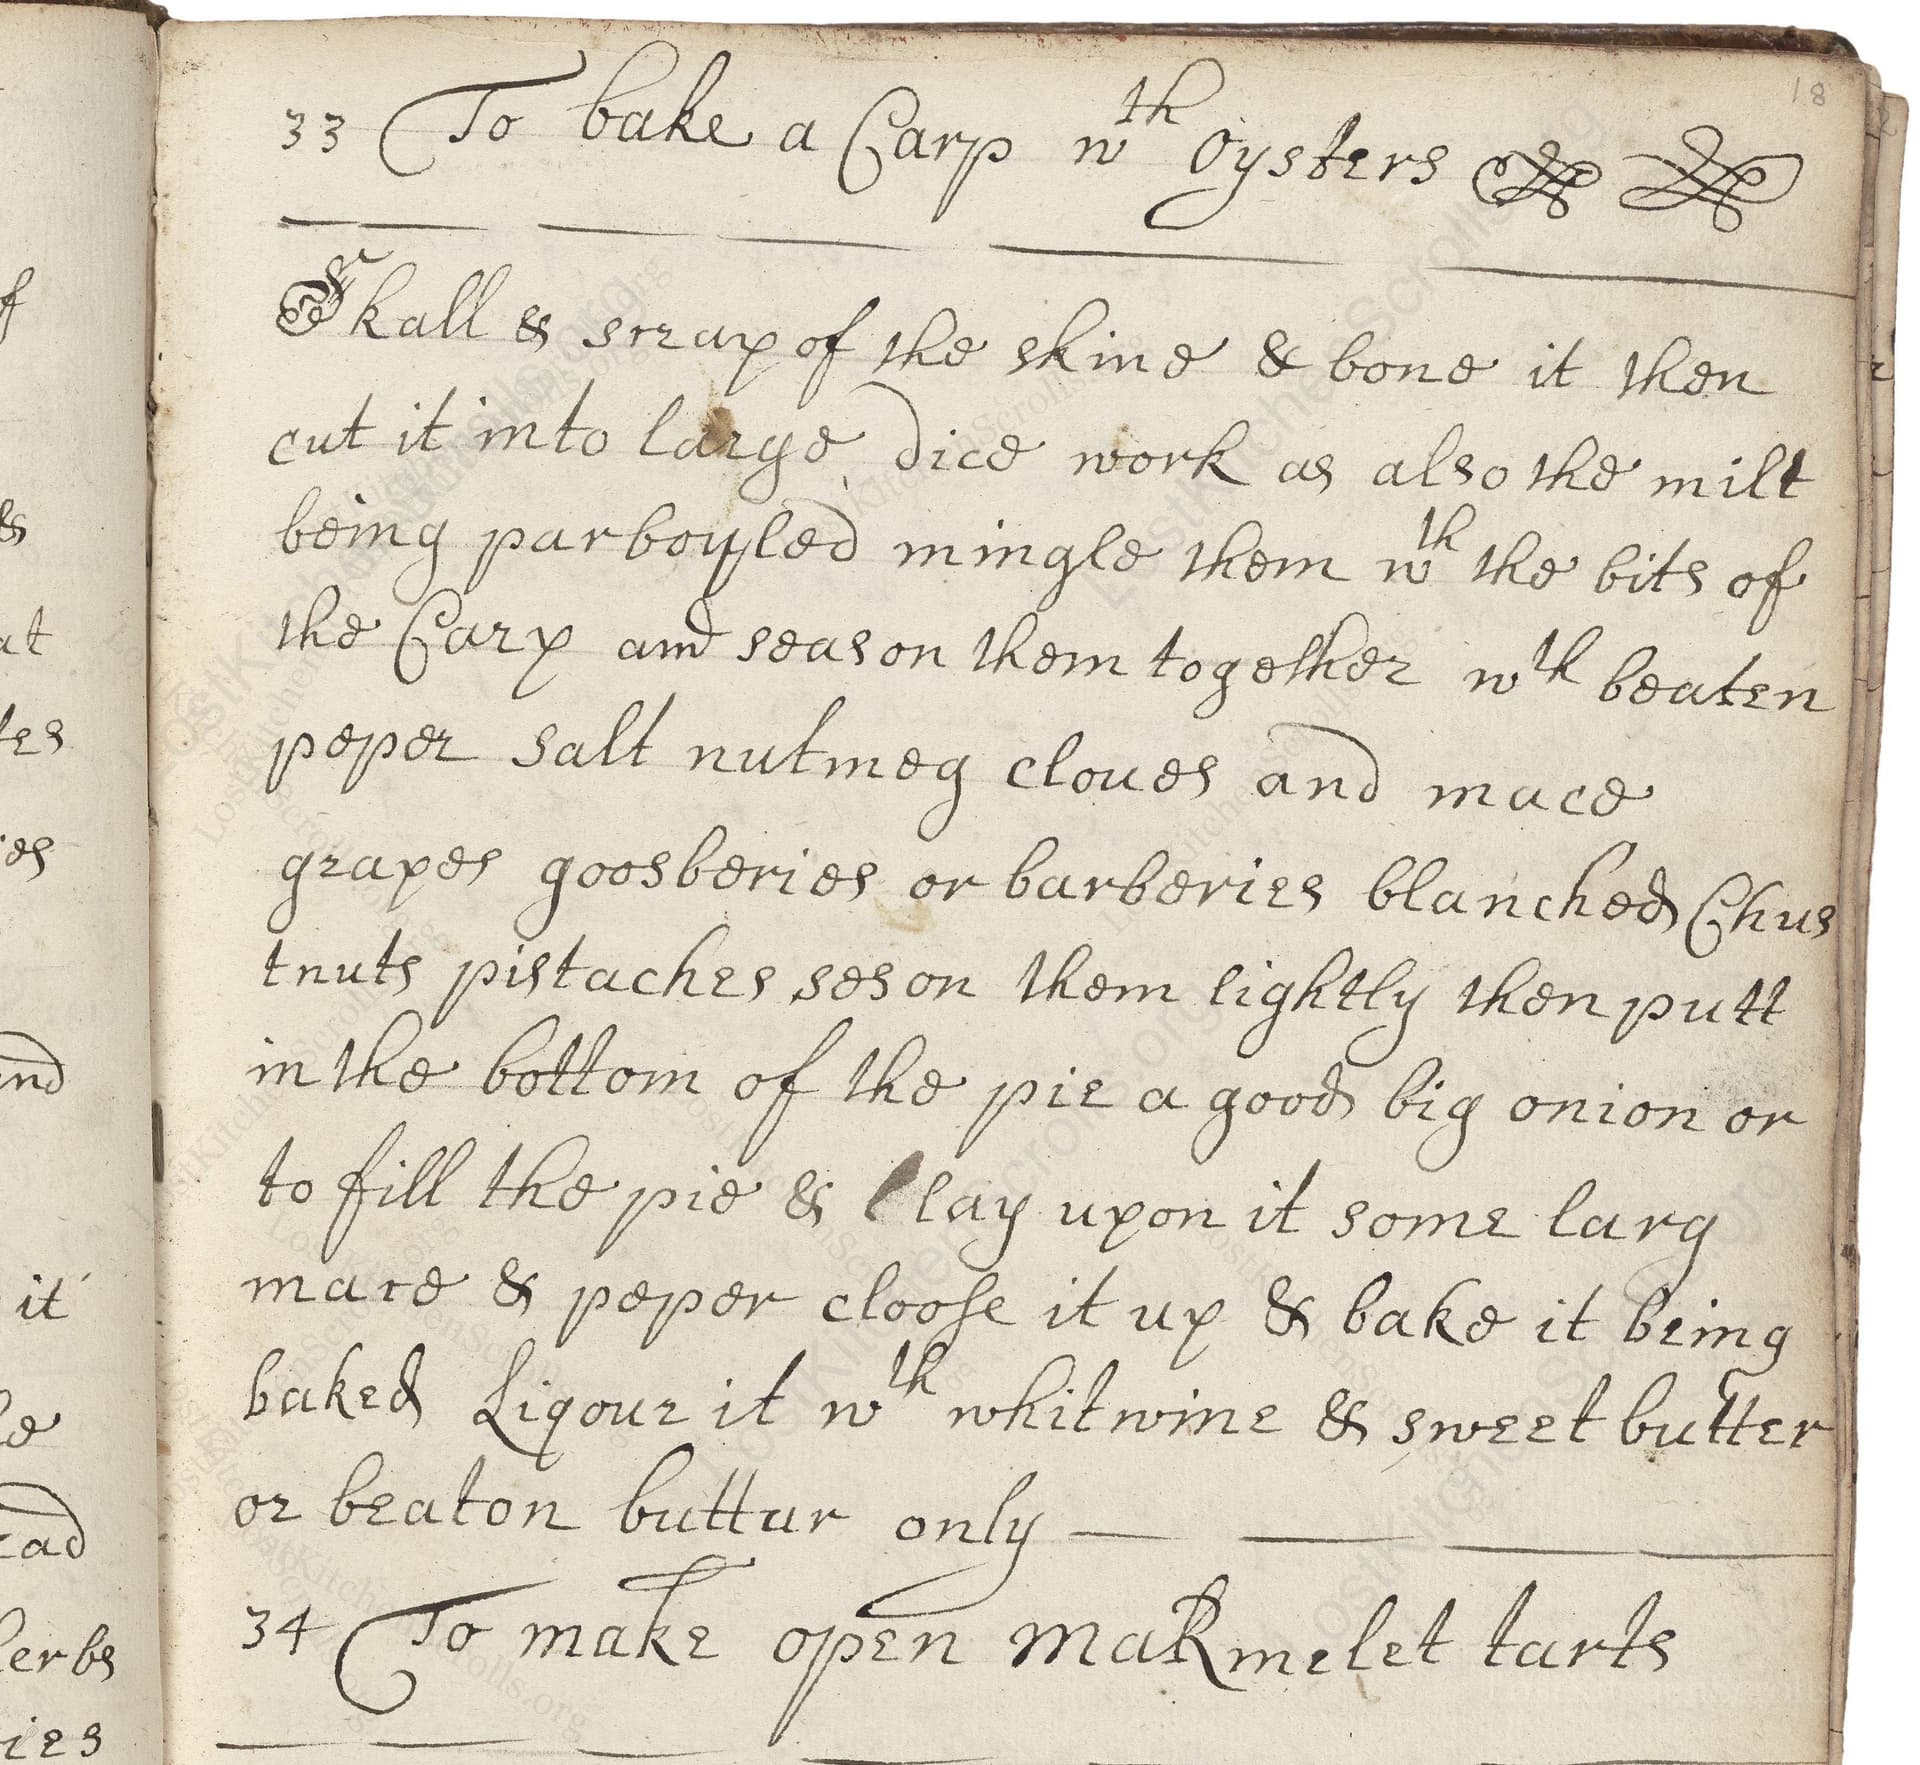 18
33 To bake a Carp wth Oysters
Skall & scrap of the skine & bone it then
cut it into large dice work as also the milt
being parboyled mingle them wth the bits of
the Carp and season them together wth beaten
peper salt nutmeg cloues and mace
grapes goosberies or barberies blanched Chus
tnuts pistaches seson them lightly then putt
in the bottom of the pie a good big onion or
to fill the pie & lay upon it some larg
mace & peper cloose it up & bake it being
baked Liqour it wth whitwine & sweet butter
or beaton buttur only
34 To make open maRmelet tarts
f
&
at
tes
ies
and
it
le
ead
herbs
ies